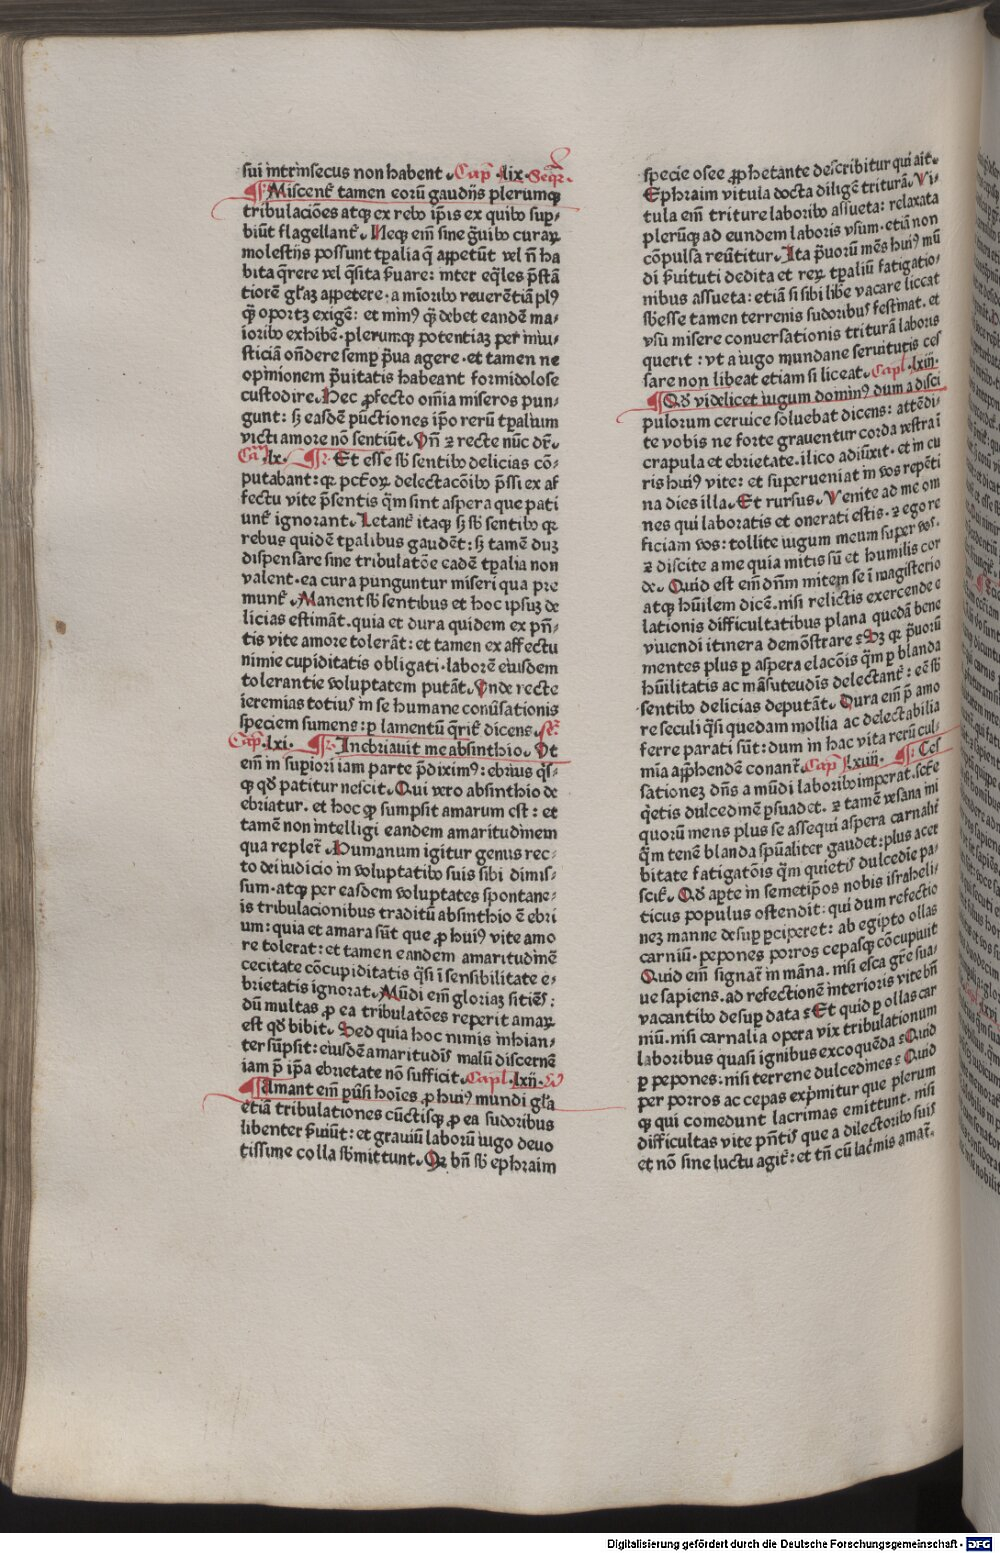 sui intrinsecus non habent. Cap̄ .lix. Seqr̄.
Miscent᷑ tamen eorū gaudijs plerumqꝫ
tribulaciōes atqꝫ ex rebꝰ ip̄is ex quibꝰ sup̱⸗
biūt flagellant᷑. Neqꝫ em̄ sine g̃uibꝰ curaꝝ
molestijs possunt tp̱alia q̄ appetūt vel n̄ ha
bita q̄rere vel q̄sita ẜuare: inter eq̄les p̄stā
tiorē gl̄aꝫ appetere. a mīoribꝰ reuerētiā plꝰ
qꝫ oportꝫ exigē: et minꝰ qꝫ debet eandē ma⸗
ioribꝰ exhibē. plerumqꝫ potentiaꝫ per iniu⸗
sticiā on̄dere semp̱ p̱ua agere. et tamen ne
opinionem p̱uitatis habeant formidolose
custodire. Hec ꝓfecto om̄ia miseros pun⸗
gunt: sꝫ easdē pūctiones ip̄o rerū tp̱alium
victi amore nō sentiūt. Vn̄ ⁊ recte nūc dr̄.
Ca .lx. Et esse sb̄ sentibꝰ delicias cō⸗
putabant: qꝛ pctōꝝ delectacōibꝰ p̄ssi ex af
fectu vite p̄sentis q̄m sint aspera que pati
unt᷑ ignorant. Letant᷑ itaqꝫ sꝫ sb̄ sentibꝰ qꝛ
rebus quidē tp̱alibus gaudēt: sꝫ tamē duꝫ
dispensare sine tribulatōe eadē tp̱alia non
valent. ea cura punguntur miseri qua pre
munt᷑. Manent sb̄ sentibus et hoc ipsuꝫ de
licias estimāt. quia et dura quidem ex pn̄⸗
tis vite amore tolerāt: et tamen ex affectu
nimie cupiditatis obligati. laborē eiusdem
tolerantie voluptatem putāt. Vnde recte
ieremias totiuſ in se humane conuſationis
speciem sumens: p̱ lamentū q̄rit᷑ dicens.
Cap̄ .lxi. Inebriauit me absinthio. Vt
em̄ in sup̱iori iam parte p̄diximꝰ: ebrius q̄s⸗
qꝫ qd̄ patitur nescit. Qui vero absinthio de
ebriatur. et hoc qꝫ sumpsit amarum est: et
tamē non intelligi eandem amaritudinem
qua replet᷑. Humanum igitur genus rec⸗
to dei iudicio in voluptatibꝰ suis sibi dimis⸗
sum. atqꝫ per easdem voluptates spontane⸗
is tribulacionibus traditū absinthio ē ebri
um: quia et amara sūt que ꝓ huiꝰ vite amo
re tolerat: et tamen eandem amaritudinē
cecitate cōcupiditatis q̄si ī sensibilitate e⸗
brietatis ignorat. Mūdi em̄ gloriaꝫ sitiēs:
dū multas ꝓ ea tribulatōes reperit amaꝝ
est qd̄ bibit. Sed quia hoc nimis inhian⸗
ter sūpsit: eiusdē amaritudīs malū discernē
iam p̄ ip̄a ebrietate nō sufficit. Capl .lxij.
Amant em̄ p̱ūsi hoīes ꝓ huiꝰ mundi gl̄a
etiā tribulationes cūctisqꝫ ꝓ ea sudoribus
libenter ẜuiūt: et grauiū laborū iugo deuo
tissime colla sb̄mittunt. Qꝛ bn̄ sb̄ ephraim
specie osee ꝓphetante describitur qui ait.
Ephraim vitula docta diligē triturā. Vi⸗
tula em̄ triture laboribꝰ assueta: relaxata
plerūqꝫ ad eundem laboris vsum. etiā non
cōpulsa reūtitur. Ita p̱uorū mēs huiꝰ mū
di ẜuituti dedita et reꝝ tp̱aliū fatigatio⸗
nibus assueta: etiā si sibi libe᷑ vacare liceat
sb̄esse tamen terrenis sudoribuſ festinat. et
vsu misere conuersationis triturā laboris
querit: vt a iugo mundane seruitutis ces
sare non libeat etiam si liceat. Capl .lxiij.
Qd̄ videlicet iugum dominꝰ dum a disci
pulorum ceruice soluebat dicens: attēdi⸗
te vobis ne forte grauentur corda vestra ī
crapula et ebrietate. ilico adiūxit. et in cu
ris huiꝰ vite: et superueniat in vos repēti
na dies illa. Et rursus. Venite ad me om
nes qui laboratis et onerati estis. ⁊ ego re
ficiam vos: tollite iugum meum super vos.
⁊ discite a me quia mitis sū et humilis cor
de. Quid est em̄ dn̄m mitem se ī magisterio
atqꝫ hūilem dicē. nisi relictis exercende e
lationis difficultatibus plana quedā bene
viuendi itinera demōstrare. Sꝫ qꝛ p̱uorū
mentes plus p̱ aspera elacōis q̄m p̱ blanda
hūilitatis ac māsuetudīs delectant᷑: eē sb̄
sentibꝰ delicias deputāt. Dura em̄ p̄ amo
re seculi q̄si quedam mollia ac delectabilia
ferre parati sūt: dum in hac vita rerū cul⸗
mīa app̄hendē conant᷑. Cap̄ .lxiiij. Ces
sationeꝫ dn̄s a mūdi laboribꝰ imperat. scē
q̄etis dulcedinē p̱suadet. ⁊ tamē vesana ini
quorū mens plus se assequi aspera carnalit᷑
q̄m tenē blanda sp̄ualiter gaudet: plus acer
bitate fatigatōis q̄m quietiſ dulcedīe pa⸗
scit᷑. Qd̄ ap̱te in semetip̄os nobis israheli⸗
ticus populus ostendit: qui dum refectio
neꝫ manne desup̱ p̱ciperet: ab egipto ollas
carniū. pepones porros cepasqꝫ cōcupiuit
Quid em̄ signat᷑ in māna. nisi esca gr̄e sua⸗
ue sapiens. ad refectionē interioris vite bn̄
vacantibꝰ desup̱ data. Et quid p̱ ollas car
niū. nisi carnalia opera vix tribulationum
laboribus quasi ignibus excoquēda. Quid
p̱ pepones: nisi terrene dulcedines. Quid
per porros ac cepas exp̄mitur que plerum
qꝫ qui comedunt lacrimas emittunt. nisi
difficultas vite pn̄tiſ que a dilectoribꝰ suis
et nō sine luctu agit᷑: et tn̄ cū lac᷑mis amat᷑.
Digitalisierung gefördert durch die Deutsche Forschungsgemeinschaft - DFG